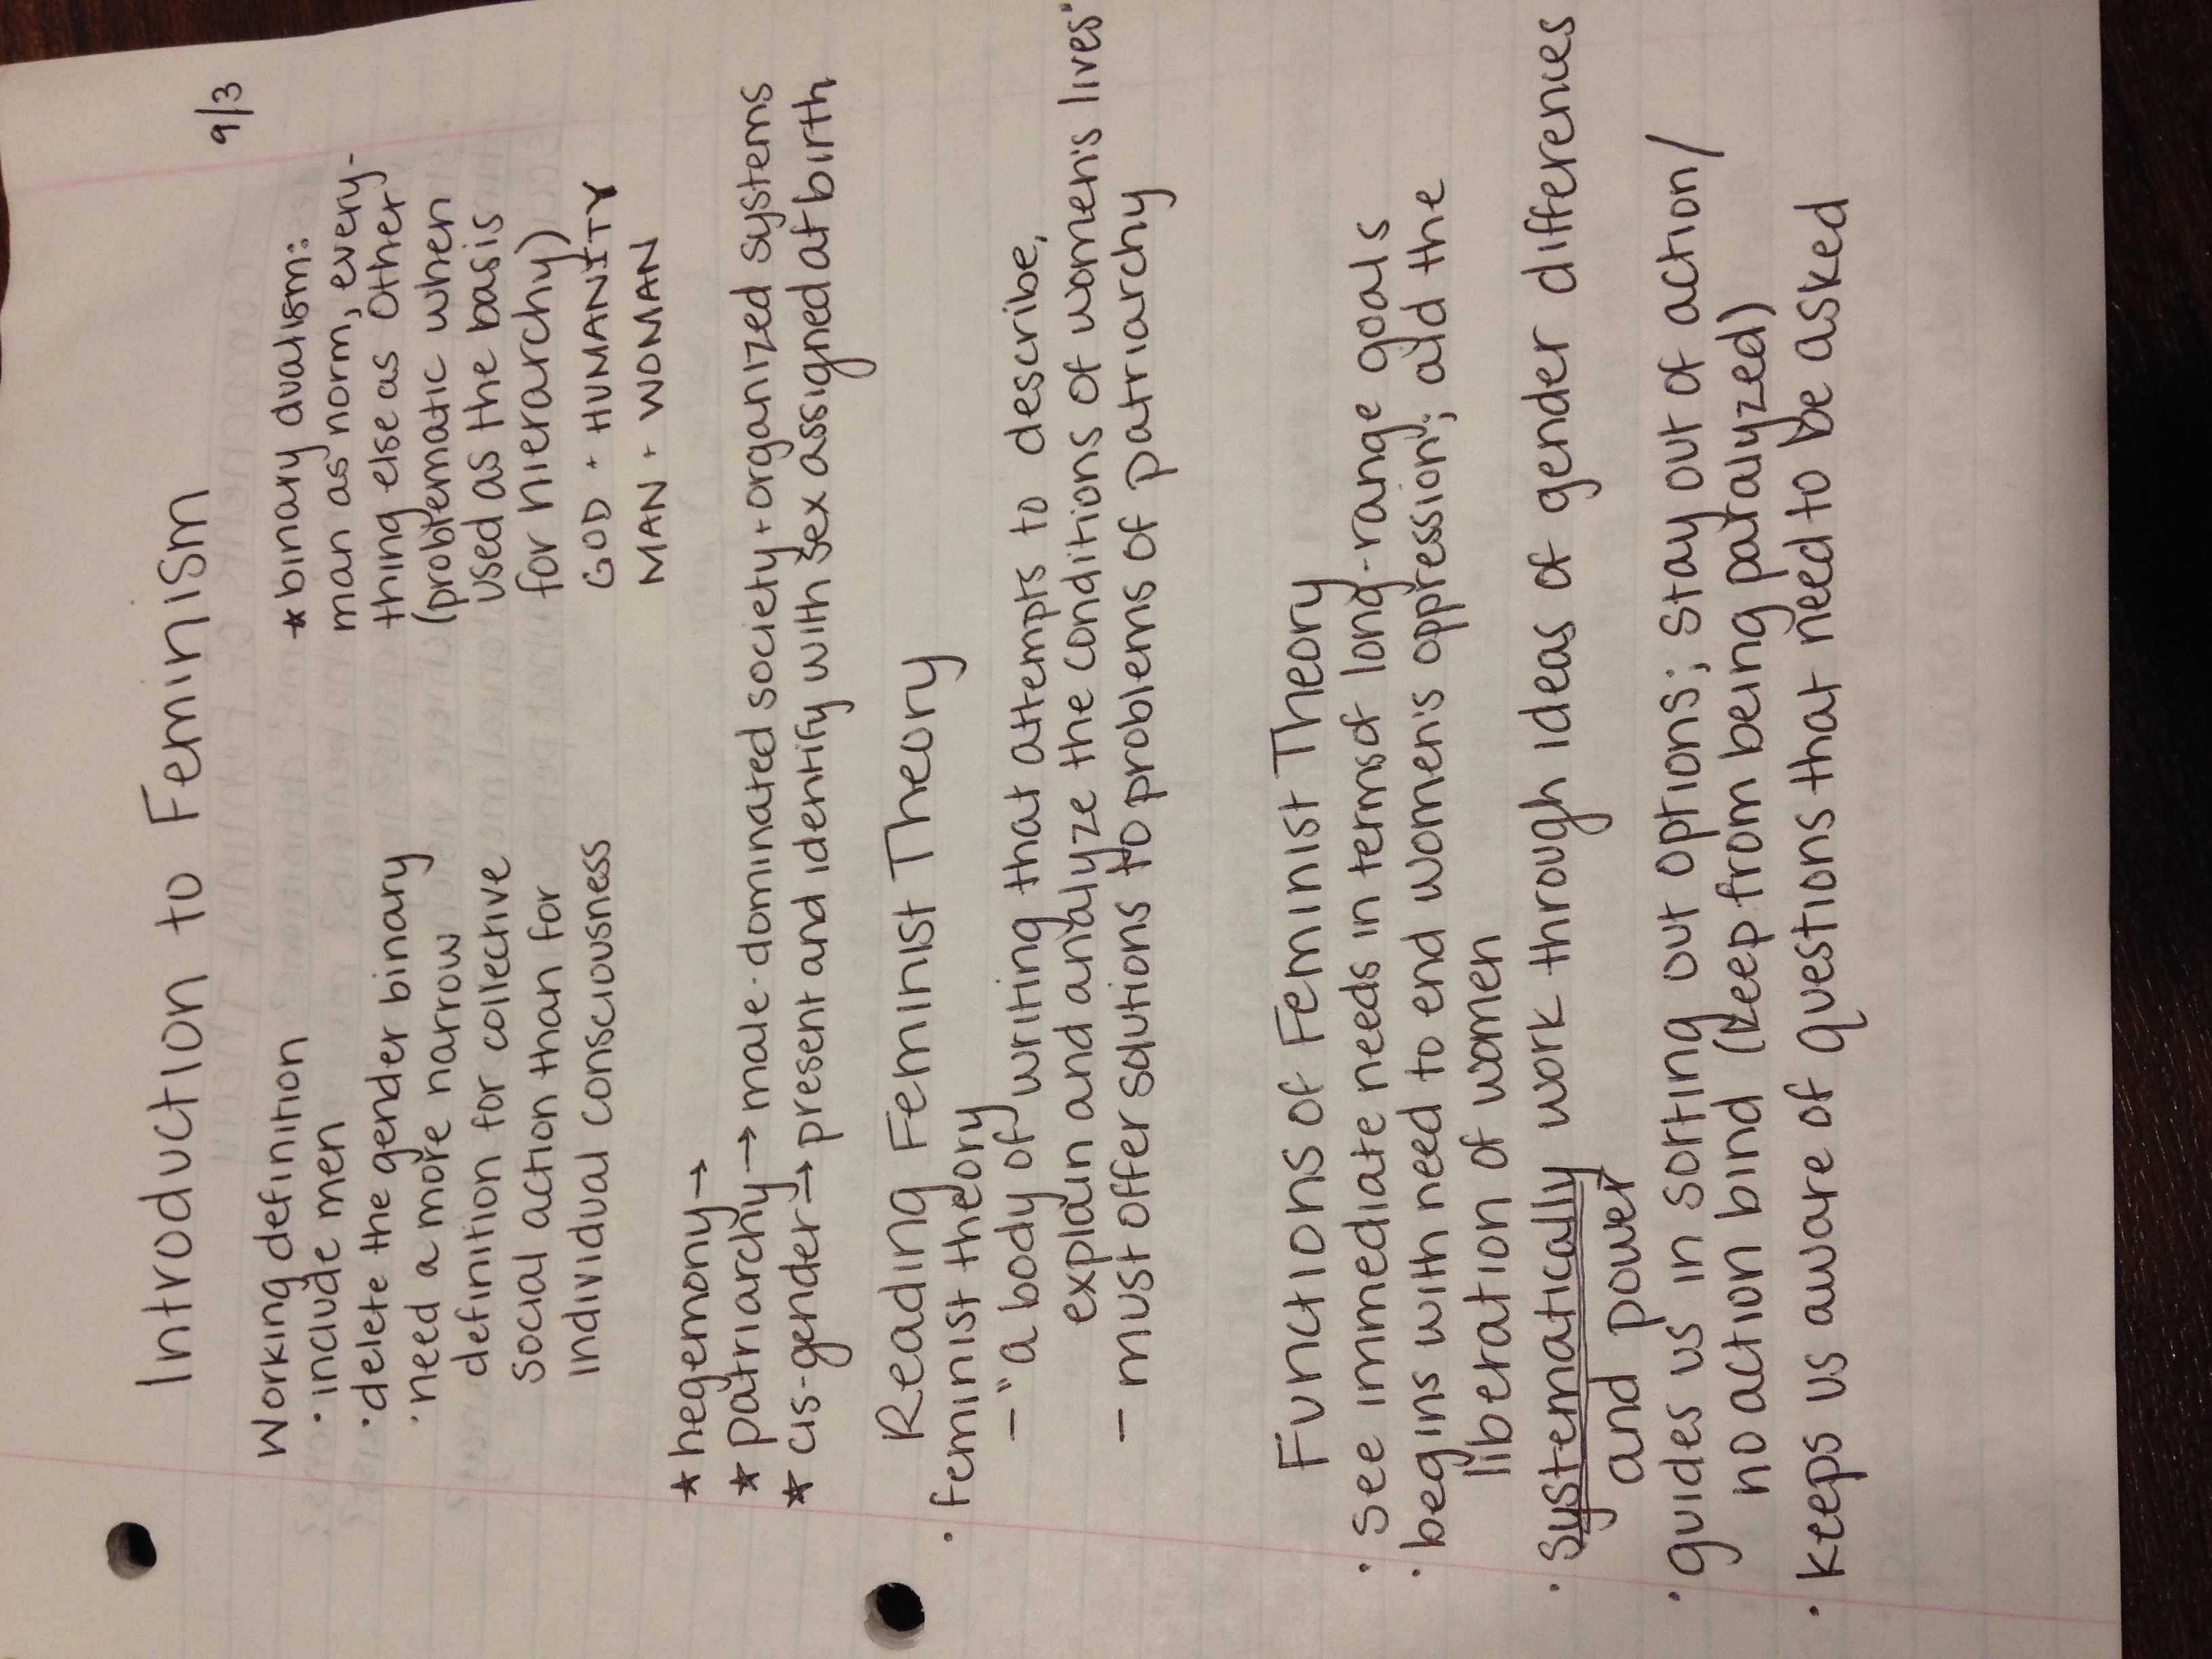 Introduction to Feminism
9/3
Working definition
· include men
· delete the gender binary
· need a more narrow
definition for collective
social action than for
individual consciousness
* binary dualism:
man as norm, every-
thing else as other
(problematic when
used as the basis
for hierarchy)
GOD · HUMANITY
MAN · WOMAN
* hegemony →
* patriarchy → male-dominated society + organized systems
* cis-gender → present and identify with sex assigned at birth
Reading Feminist Theory
· feminist theory
- "a body of writing that attempts to describe,
explain and analyze the conditions of women's lives"
- must offer solutions to problems of patriarchy
Functions of Feminist Theory
· see immediate needs in terms of long-range goals
· begins with need to end women's oppression; aid the
liberation of women
· systematically work through ideas of gender differences
and power
· guides us in sorting out options; stay out of action/
no action bind (keep from being paralyzed)
· keeps us aware of questions that need to be asked